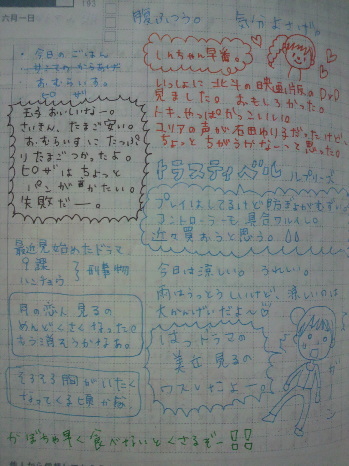 六月一日
腹ふつう。 気分よさげ。
・今日のごはん
おむらいす。
ピザ
玉子おいしいなー。
さいきん、たまご安い。
おむらいすにたっぷ
りたまごつかったよ。
ピザはちょっと
パンがかたい。
失敗だー。
しんちゃん早番。
いっしょに北斗の映画版のDVD
見ました。おもしろかった。
トキ、やっぱかっこいい。
ユリアの声が石田ゆり子だったけど、
ちょっとちがうかなーっと思った。
トラスティベル
プレイはしてるけど
コントローラーも具合ワルイし。
近々買おうと思う。
今日は涼しい。うれしい。
雨はうっとうしいけど、涼しいのは
大かんげいだよ〜
最近見始めたドラマ。
ハンチョウ
刑事物
月の恋人 見るの
めんどくさくなった。
もう消そうかなあ。
そろそろ胸がいたく
なってくる頃か
ドラマの
見るの
ワスレたよー。
かぼちゃ早く食べないとくさるぞー!!